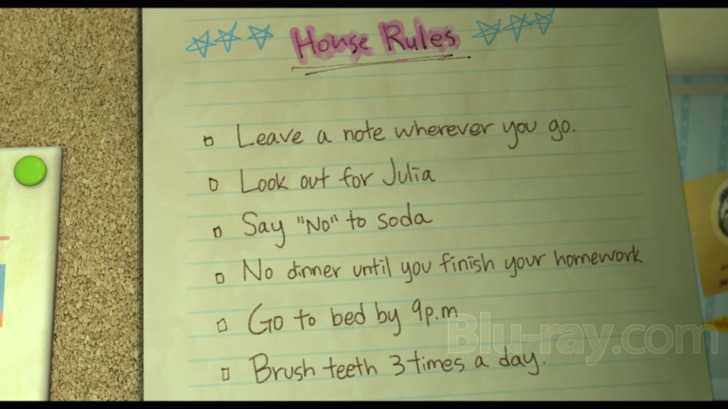 House Rules
Leave a note wherever you go.
Look out for Julia
Say "No" to soda
No dinner until you finish your homework
Go to bed by 9p.m
Brush teeth 3 times a day.
Blu-ray.com